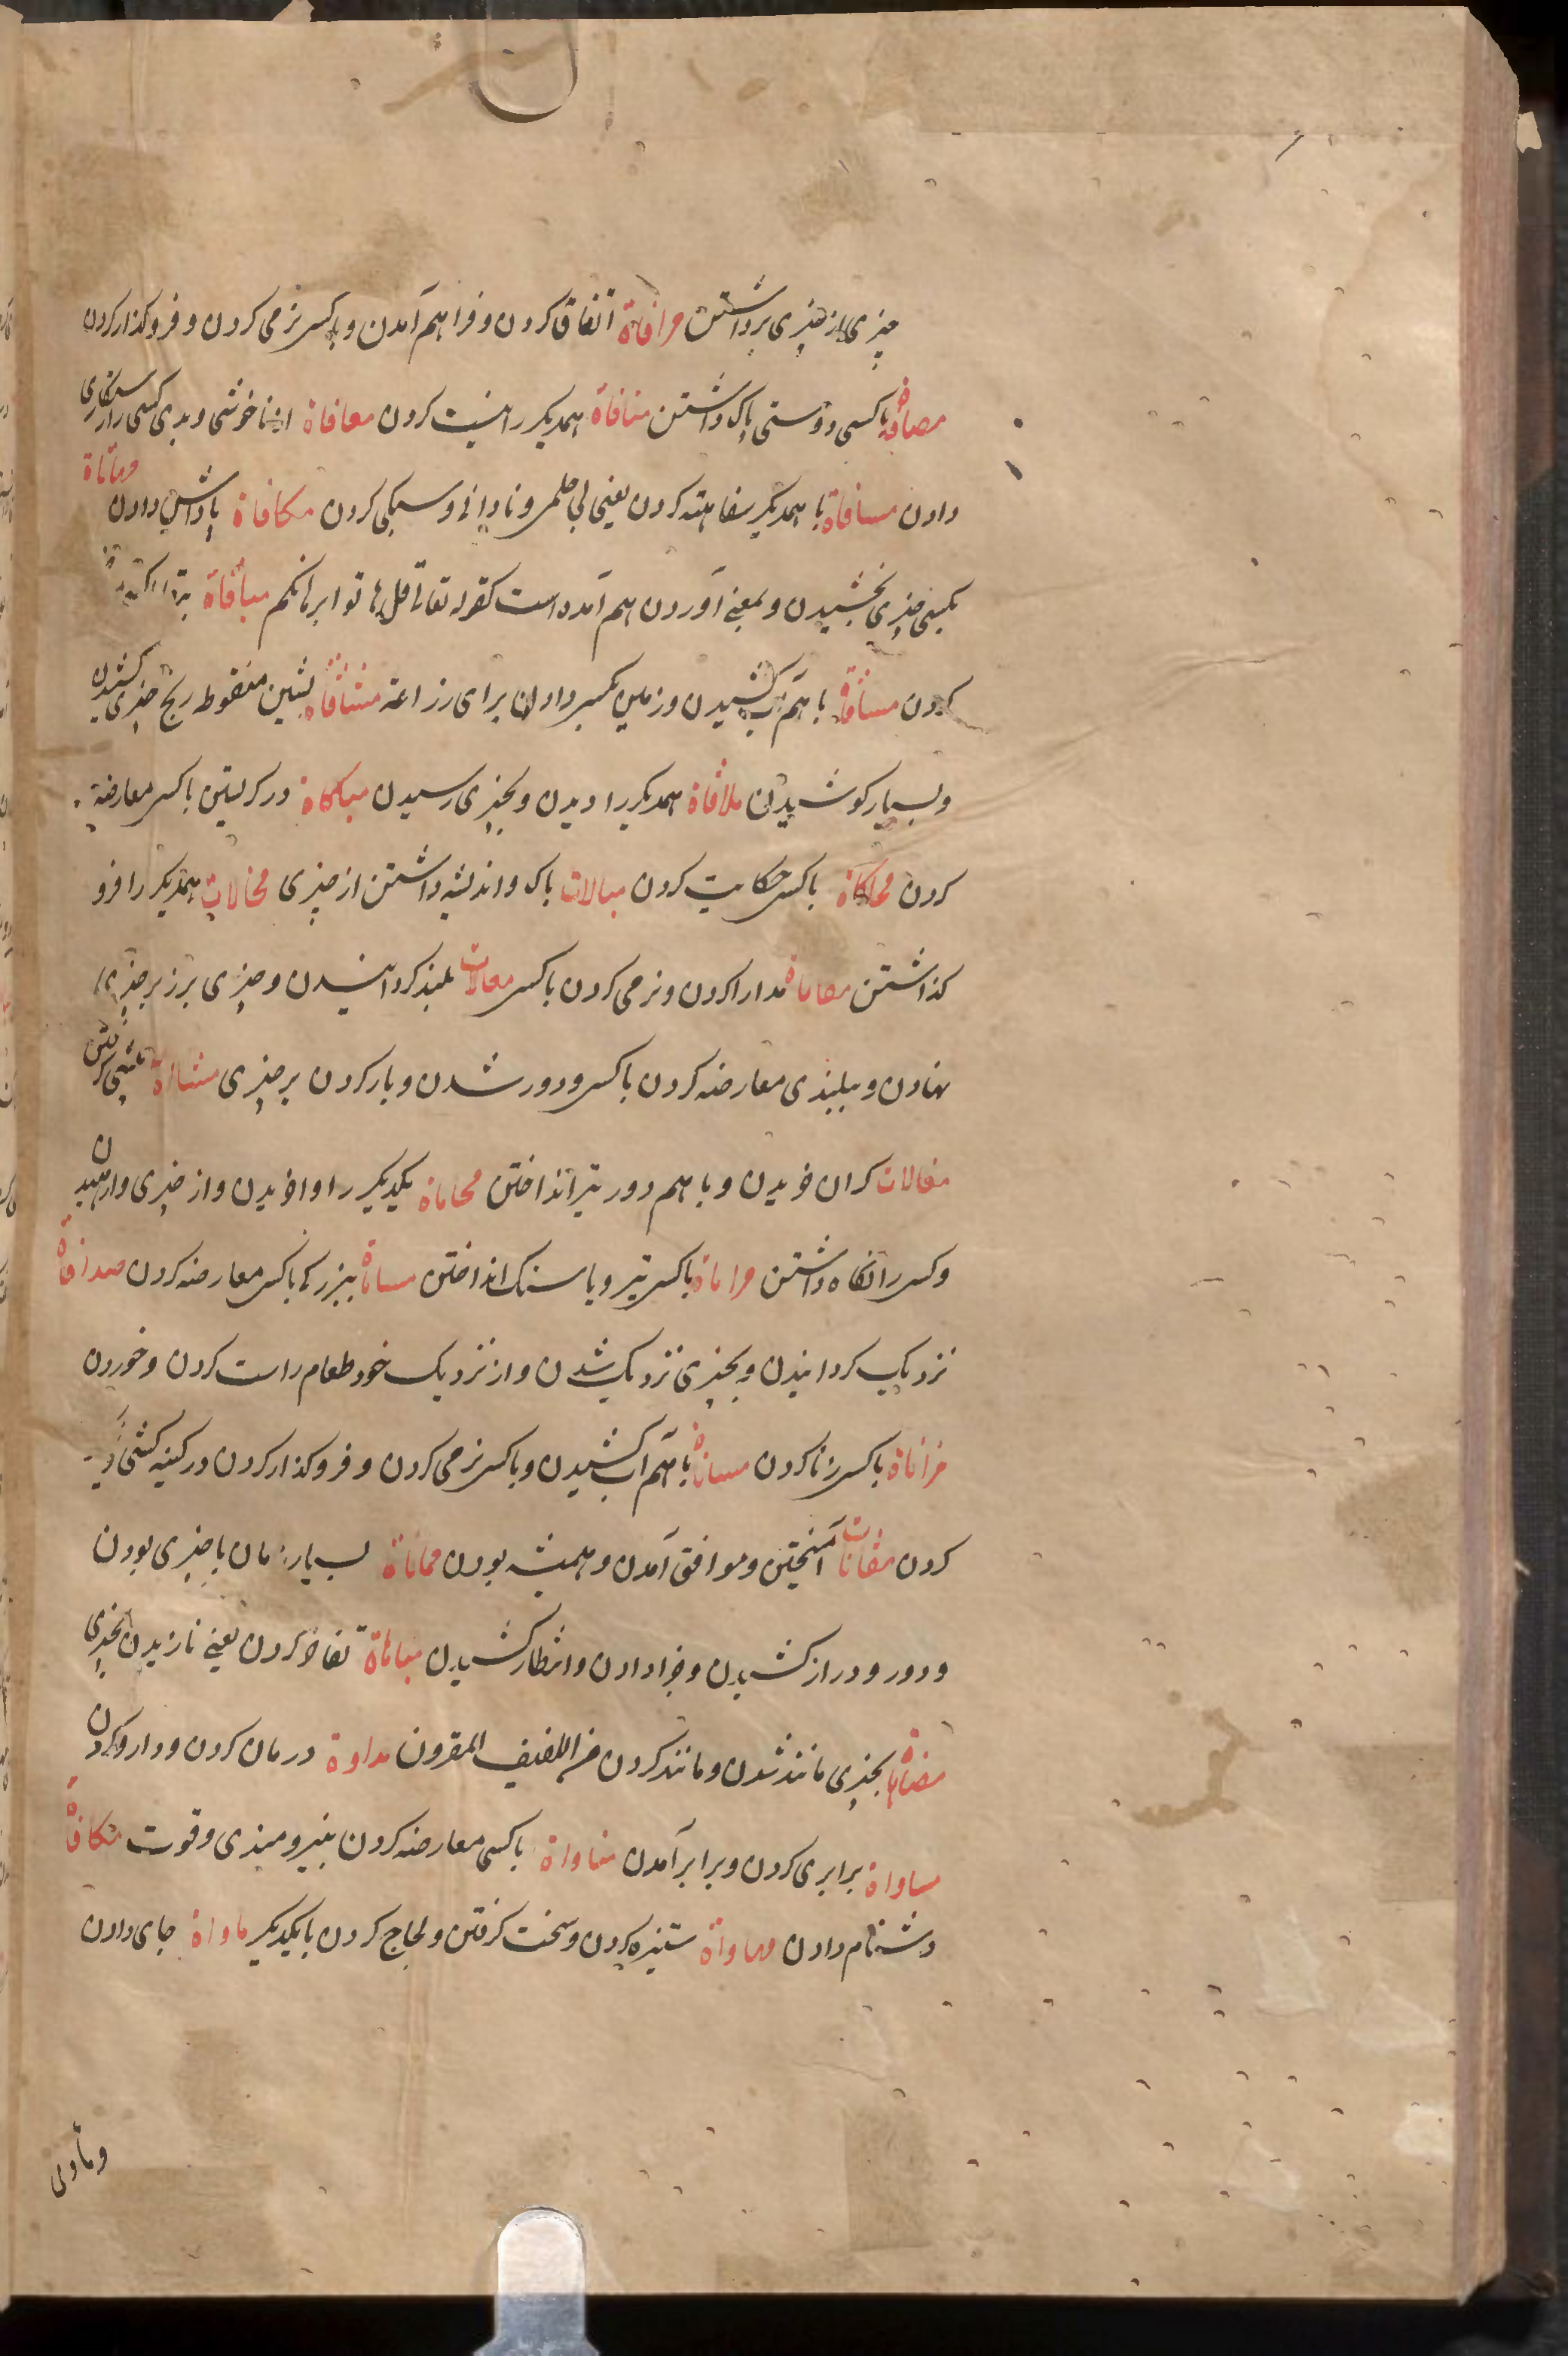 چیزی از چیزی برداشتن مرافاة اتفاق کردن و فراهم آمدن و باکسی نرمی کردن و فروکذار کردن
مصافاة باکسی دوستی پاک داشتن منافاة همدیکر را نیست کردن معافاة از ناخوشی و بدی کسی را رستکاری
دادن مسافاة با همدیکر سفاهته کردن یعنی بی حلمی و نادانی و سبکی کردن مکافاة پاداش دادن ومهاتاة
بکسی چیزی بخشیدن و بمعنی آوردن هم آمده است کقوله تعالی قل هاتوا برهانکم مباقاة
کردن مساقاة باهم آب کشیدن و زمین بکسی دادن برای زراعة مشاقاة بشین منقوط رنج چیزی کشیدن
و بسیار کوشیدن ملاقاة همدیکر را دیدن و بچیزی رسیدن مباکاة در کریستن باکسی معارضه
کردن محاکاة باکسی حکایت کردن مبالات باک و اندیشه داشتن از چیزی مخالات همدیکر را فرو
کذاشتن مصاناة مدارا کردن و نرمی کردن باکسی معالات بلند کردانیدن و چیزی بر زبر چیزی
نهادن و ببلندی معارضه کردن باکسی و دور شدن و بار کردن بر چیزی مشااة پیشی کرفتن
مغالات کران خریدن و با هم دور تیر انداختن محاماة یکدیکر را واخریدن و از چیزی وارهیدن
و کسی را نکاه داشتن مراماة باکسی تیر و یا سنک انداختن مساماة ببزرکی باکسی معارضه کردن مداناة
نزدیک کردانیدن و بچیزی نزدیک شدن و از نزدیک خود طعام راست کردن و خوردن
مزاناة باکسی زنا کردن مساناة باهم آب کشیدن و باکسی نرمی کردن و فروکذار کردن در کینه کشی
کردن مقانات آمیختن و موافق آمدن و همیشه بودن مماناة بسیار زمان با چیزی بودن
و دور و دراز کشیدن و جزا دادن و انتظار کشیدن مباهاة تفاخر کردن یعنی نازیدن بچیزی
مضاهاة بچیزی مانند شدن و مانند کردن من اللفیف المقرون مداوة درمان کردن و دارو کردن
مساواة برابری کردن و برابر آمدن مقاواة باکسی معارضه کردن بنیرومندی و قوت مکافاة
دشنام دادن مهاواة ستیزه کردن و سخت کرفتن و لجاج کردن با یکدیکر ماواة جای دادن
وتأوی